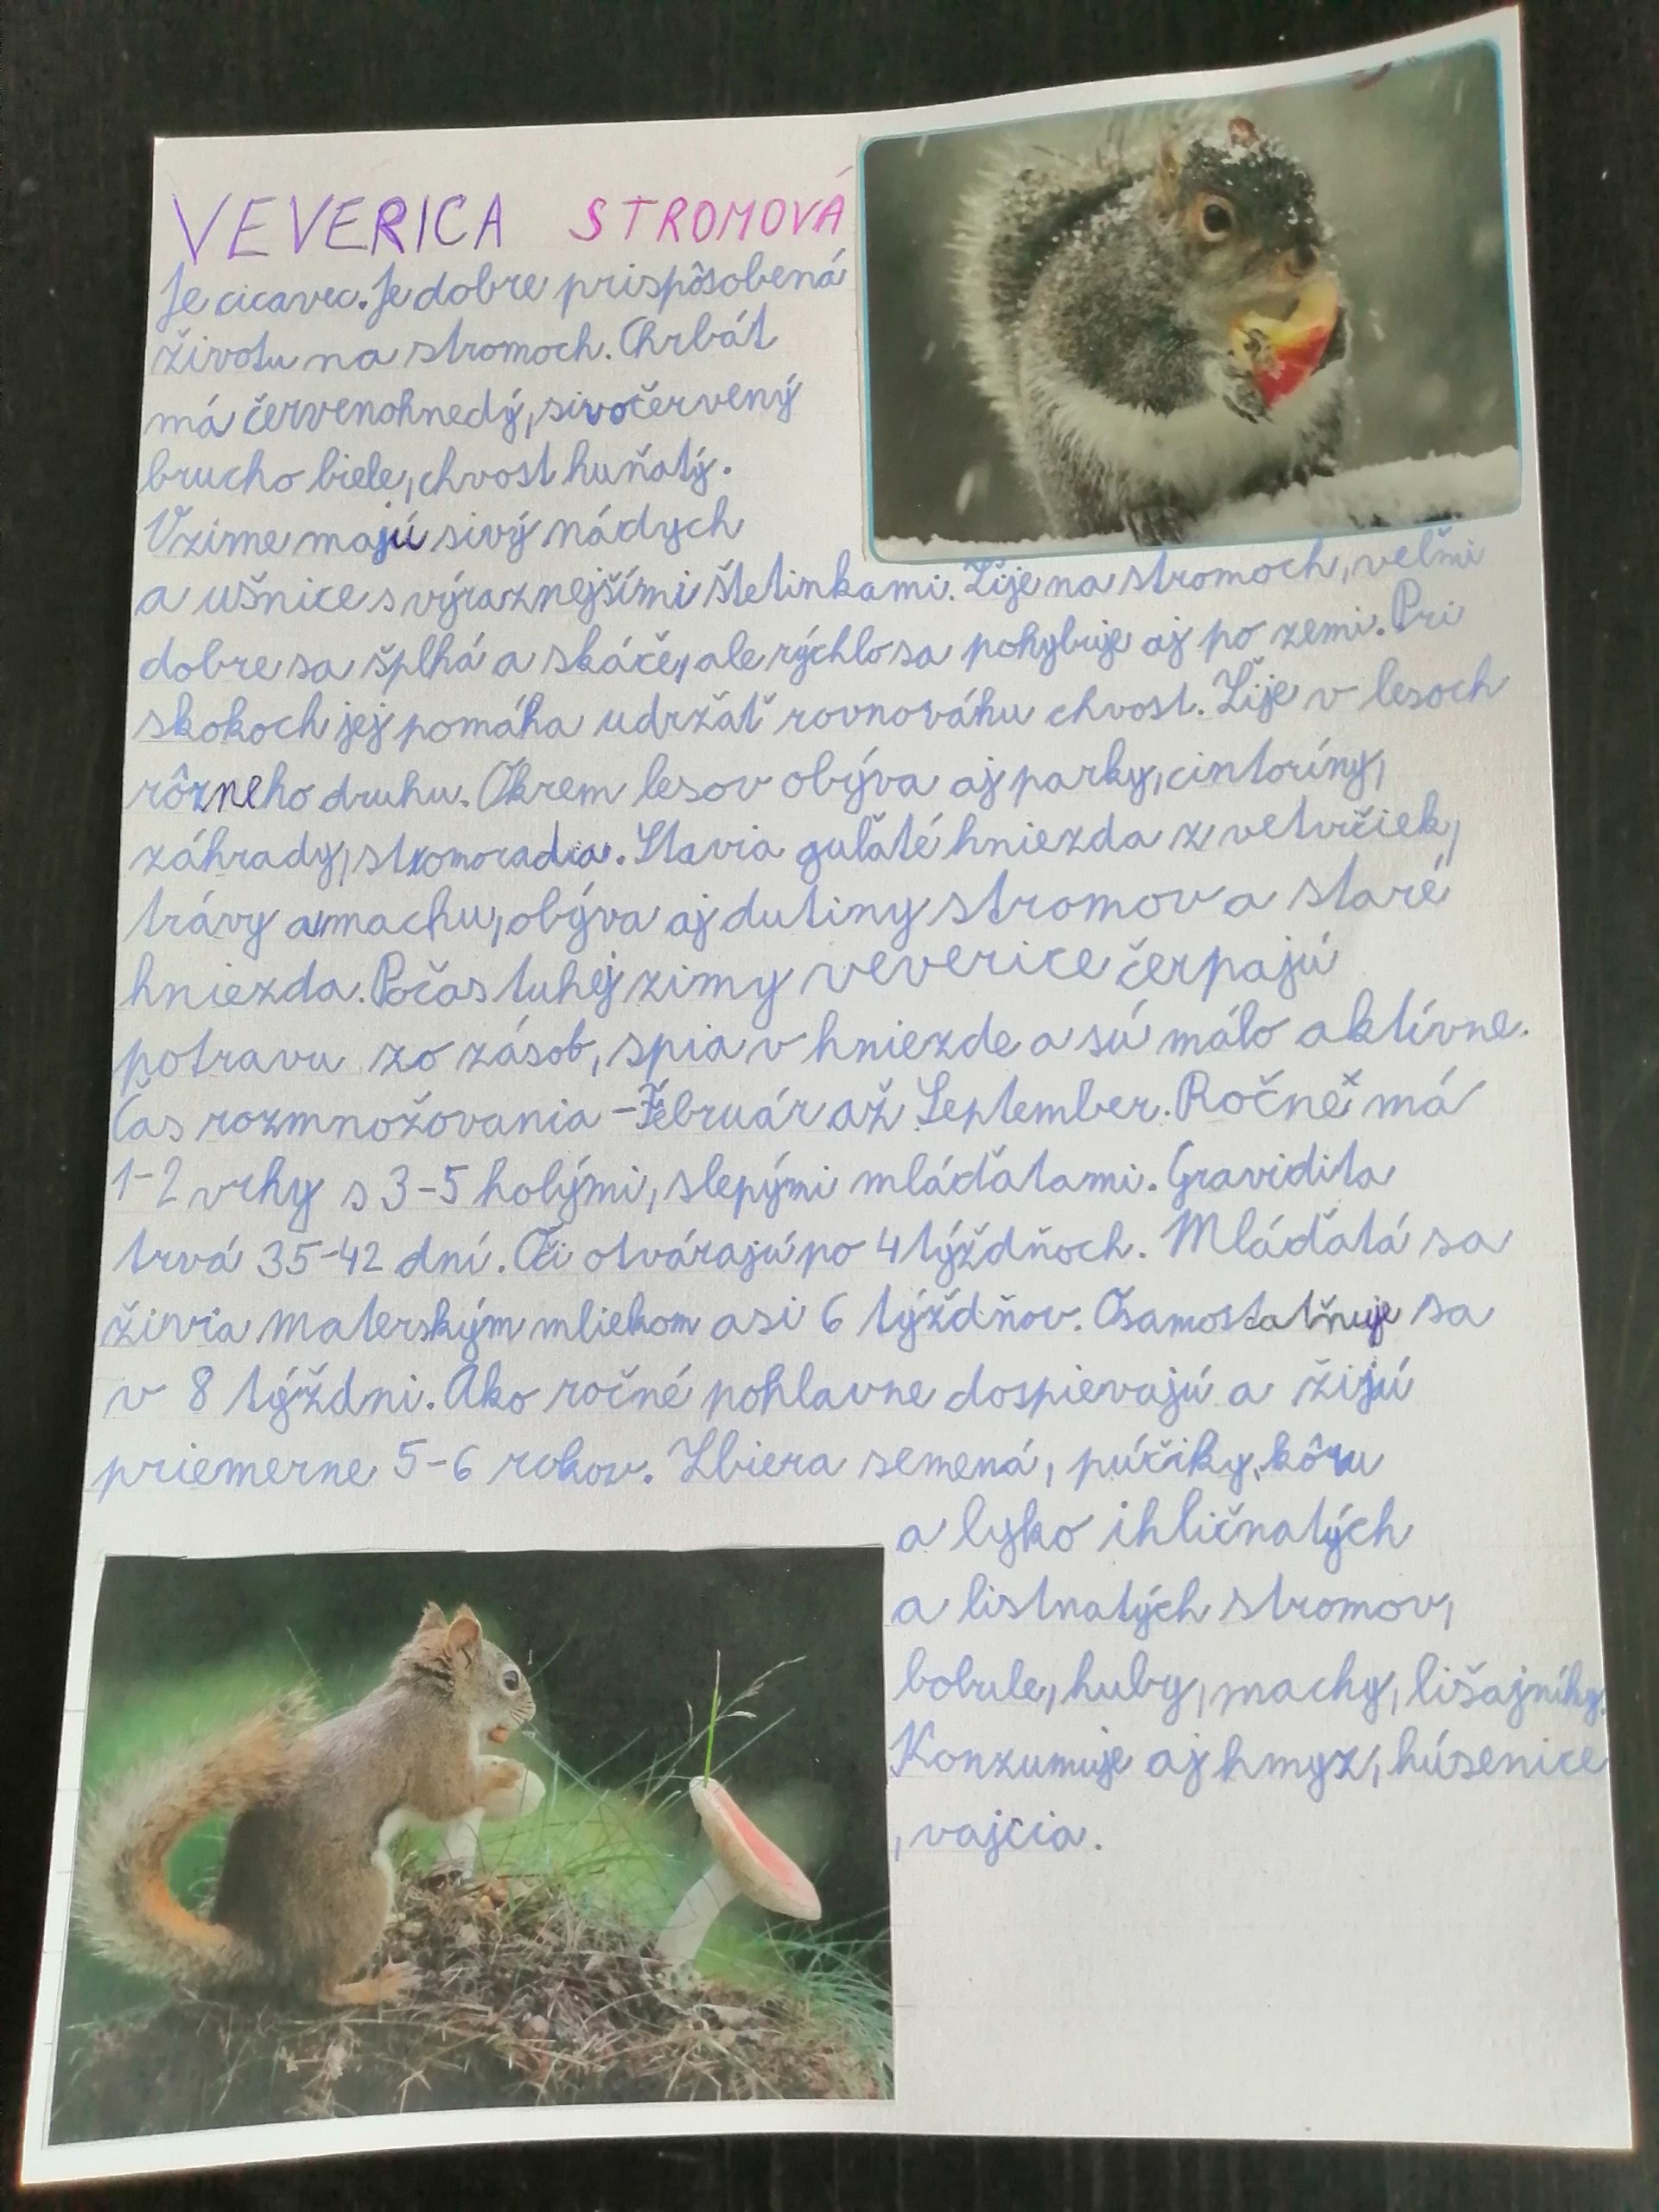 VEVERICA STROMOVÁ
Je cicavec. Je dobre prispôsobená
životu na stromoch. Chrbát
má červenohnedý, sivočervený
brucho biele, chvost huňatý.
V zime majú sivý nádych
a ušnice s výraznejšími štetinkami. Žije na stromoch, veľmi
dobre sa šplhá a skáče, ale rýchlo sa pohybuje aj po zemi. Pri
skokoch jej pomáha udržať rovnováhu chvost. Žije v lesoch
rôzneho druhu. Okrem lesov obýva aj parky, cintoríny,
záhrady, stromoradia. Stavia guľaté hniezda z vetvičiek,
trávy a machu, obýva aj dutiny stromov a staré
hniezda. Počas tuhej zimy veverice čerpajú
potravu zo zásob, spia v hniezde a sú málo aktívne.
Čas rozmnožovania - Február až September. Ročne má
1-2 vrhy s 3-5 holými, slepými mláďatami. Gravidita
trvá 35-42 dní. Oči otvárajú po 4 týždňoch. Mláďatá sa
živia materským mliekom asi 6 týždňov. Osamostatňuje sa
v 8 týždni. Ako ročné pohlavne dospievajú a žijú
priemerne 5-6 rokov. Zbiera semená, púčiky, kôru
a lyko ihličnatých
a listnatých stromov,
bobule, huby, machy, lišajníky.
Konzumuje aj hmyz, húsenice
, vajcia.